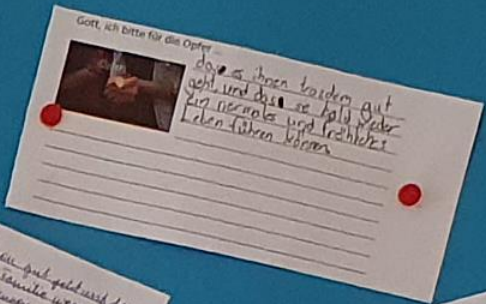 Gott, ich bitte für die Opfer...
dass es ihnen trozdem gut
geht und dass sie bald wieder
ein normales und fröhliches
Leben führen können
gut geht und
Familie